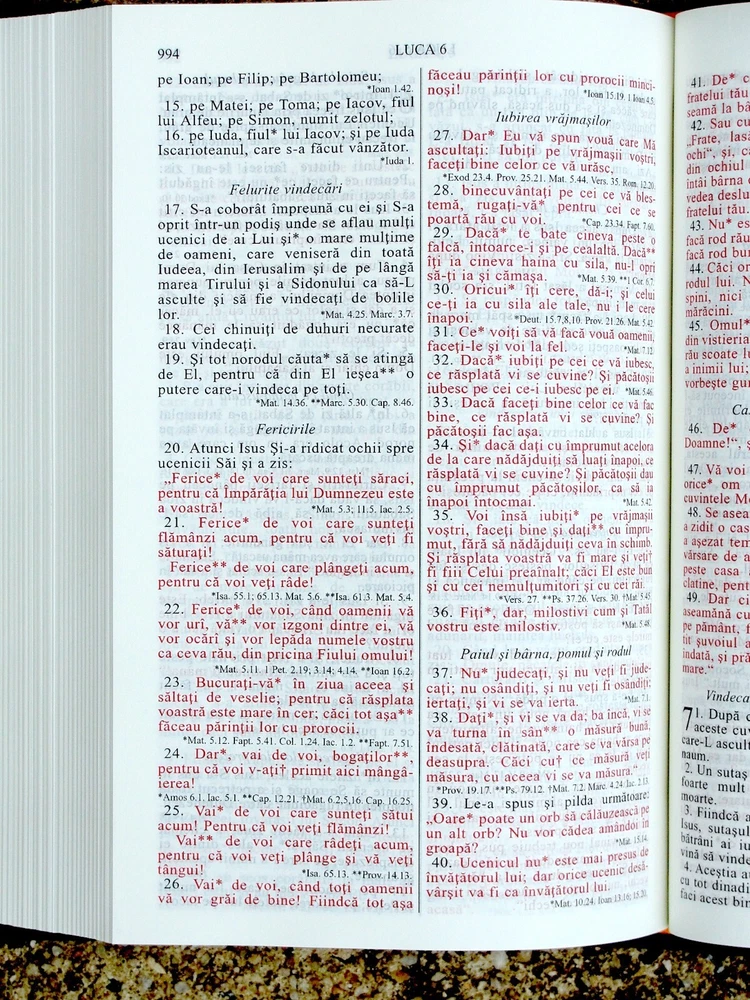 994
LUCA 6
pe Ioan; pe Filip; pe Bartolomeu;
*Ioan 1.42.
15. pe Matei; pe Toma; pe Iacov, fiul
lui Alfeu; pe Simon, numit zelotul;
16. pe Iuda, fiul* lui Iacov; şi pe Iuda
Iscarioteanul, care s-a făcut vânzător.
*Iuda 1.
Felurite vindecări
17. S-a coborât împreună cu ei şi S-a
oprit într-un podiş unde se aflau mulţi
ucenici de ai Lui şi* o mare mulţime
de oameni, care veniseră din toată
Iudeea, din Ierusalim şi de pe lângă
marea Tirului şi a Sidonului ca să-L
asculte şi să fie vindecaţi de bolile
lor.
*Mat. 4.25. Marc. 3.7.
18. Cei chinuiţi de duhuri necurate
erau vindecaţi.
19. Şi tot norodul căuta* să se atingă
de El, pentru că din El ieşea** o
putere care-i vindeca pe toţi.
*Mat. 14.36. **Marc. 5.30. Cap. 8.46.
Fericirile
20. Atunci Isus Şi-a ridicat ochii spre
ucenicii Săi şi a zis:
„Ferice* de voi care sunteţi săraci,
pentru că Împărăţia lui Dumnezeu este
a voastră!
*Mat. 5.3; 11.5. Iac. 2.5.
21. Ferice* de voi care sunteţi
flămânzi acum, pentru că voi veţi fi
săturaţi!
Ferice** de voi care plângeţi acum,
pentru că voi veţi râde!
*Isa. 55.1; 65.13. Mat. 5.6. **Isa. 61.3. Mat. 5.4.
22. Ferice* de voi, când oamenii vă
vor urî, vă** vor izgoni dintre ei, vă
vor ocărî şi vor lepăda numele vostru
ca ceva rău, din pricina Fiului omului!
*Mat. 5.11. 1 Pet. 2.19; 3.14; 4.14. **Ioan 16.2.
23. Bucuraţi-vă* în ziua aceea şi
săltaţi de veselie; pentru că răsplata
voastră este mare în cer; căci tot aşa**
făceau părinţii lor cu prorocii.
*Mat. 5.12. Fapt. 5.41. Col. 1.24. Iac. 1.2. **Fapt. 7.51.
24. Dar*, vai de voi, bogaţilor**,
pentru că voi v-aţi† primit aici mângâ-
ierea!
*Amos 6.1. Iac. 5.1. **Cap. 12.21. †Mat. 6.2,5,16. Cap. 16.25.
25. Vai* de voi care sunteţi sătui
acum! Pentru că voi veţi flămânzi!
Vai** de voi care râdeţi acum,
pentru că voi veţi plânge şi vă veţi
tângui!
*Isa. 65.13. **Prov. 14.13.
26. Vai* de voi, când toţi oamenii
vă vor grăi de bine! Fiindcă tot aşa
făceau părinţii lor cu prorocii minci-
noşi!
*Ioan 15.19. 1 Ioan 4.5.
Iubirea vrăjmaşilor
27. Dar* Eu vă spun vouă care Mă
ascultaţi: Iubiţi pe vrăjmaşii voştri,
faceţi bine celor ce vă urăsc,
*Exod 23.4. Prov. 25.21. Mat. 5.44. Vers. 35. Rom. 12.20.
28. binecuvântaţi pe cei ce vă bles-
temă, rugaţi-vă* pentru cei ce se
poartă rău cu voi.
*Cap. 23.34. Fapt. 7.60.
29. Dacă* te bate cineva peste o
falcă, întoarce-i şi pe cealaltă. Dacă**
îţi ia cineva haina cu sila, nu-l opri
să-ţi ia şi cămaşa.
*Mat. 5.39. **1 Cor. 6.7.
30. Oricui* îţi cere, dă-i; şi celui
ce-ţi ia cu sila ale tale, nu i le cere
înapoi.
*Deut. 15.7,8,10. Prov. 21.26. Mat. 5.42.
31. Ce* voiţi să vă facă vouă oamenii,
faceţi-le şi voi la fel.
*Mat. 7.12.
32. Dacă* iubiţi pe cei ce vă iubesc,
ce răsplată vi se cuvine? Şi păcătoşii
iubesc pe cei ce-i iubesc pe ei.
*Mat. 5.46.
33. Dacă faceţi bine celor ce vă fac
bine, ce răsplată vi se cuvine? Şi
păcătoşii fac aşa.
34. Şi* dacă daţi cu împrumut acelora
de la care nădăjduiţi să luaţi înapoi, ce
răsplată vi se cuvine? Şi păcătoşii dau
cu împrumut păcătoşilor, ca să ia
înapoi întocmai.
*Mat. 5.42.
35. Voi însă iubiţi* pe vrăjmaşii
voştri, faceţi bine şi daţi** cu împru-
mut, fără să nădăjduiţi ceva în schimb.
Şi răsplata voastră va fi mare şi veţi†
fi fiii Celui preaînalt; căci El este bun
şi cu cei nemulţumitori şi cu cei răi.
*Vers. 27. **Ps. 37.26. Vers. 30. †Mat. 5.45.
36. Fiţi*, dar, milostivi cum şi Tatăl
vostru este milostiv.
*Mat. 5.48.
Paiul şi bârna, pomul şi rodul
37. Nu* judecaţi, şi nu veţi fi jude-
caţi; nu osândiţi, şi nu veţi fi osândiţi;
iertaţi, şi vi se va ierta.
*Mat. 7.1.
38. Daţi*, şi vi se va da; ba încă, vi se
va turna în sân** o măsură bună,
îndesată, clătinată, care se va vărsa pe
deasupra. Căci cu† ce măsură veţi
măsura, cu aceea vi se va măsura.“
*Prov. 19.17. **Ps. 79.12. †Mat. 7.2. Marc. 4.24. Iac. 2.13.
39. Le-a spus şi pilda următoare:
„Oare* poate un orb să călăuzească pe
un alt orb? Nu vor cădea amândoi în
groapă?
*Mat. 15.14.
40. Ucenicul nu* este mai presus de
învăţătorul lui; dar orice ucenic desă-
vârşit va fi ca învăţătorul lui.
*Mat. 10.24. Ioan 13.16; 15.20.
41. De* c
fratelui tău
seamă la bâ
42. Sau cu
„Frate, lasă
ochi“, şi, c
din ochiul
întâi bârna
vedea deslu
fratelui tău.
43. Nu* es
facă rod rău
facă rod bun
44. Căci or
rodul lui. N
spini, nici
mărăcini.
45. Omul*
din vistieria
rău scoate lu
a inimii lui;
vorbeşte gur
Ca
46. De*
Doamne!“, ş
47. Vă voi
orice* om
cuvintele M
48. Se asea
a zidit o cas
a aşezat tem
vărsare de a
peste casa
clatine, pent
49. Dar ci
aseamănă cu
pe pământ, f
tit şuvoiul a
îndată, şi pră
mare.“
Vindeca
7
1. După c
aceste cuv
care-L ascult
naum.
2. Un sutaş
foarte mult
moarte.
3. Fiindcă a
Isus, sutaşul
bătrâni ai iu
vină să vinde
4. Aceştia au
cu tot dinadi
faci acest bin